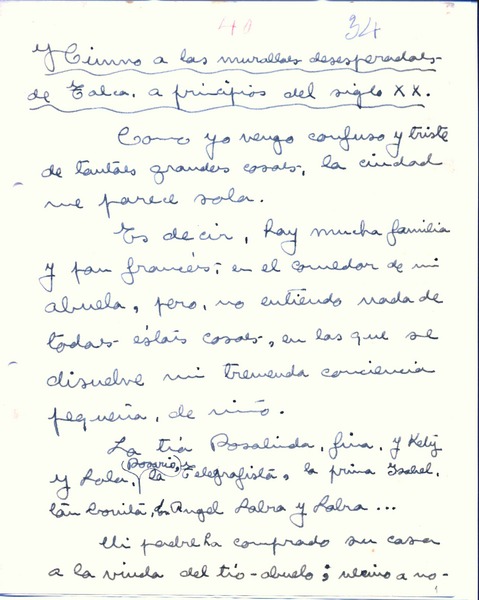 40 34
Himno a las murallas desesperadas
de Talca, a principios del siglo XX.
Como yo vengo confuso y triste
de tantas grandes cosas, la ciudad
me parece sola.
Es decir, hay mucha familia
y pan francés; en el comedor de mi
abuela, pero, no entiendo nada de
todas éstas cosas, en las que se
disuelve mi tremenda conciencia
pequeña, de niño.
La tía Rosalinda, fina, y Kety
y Lola, (Rosario, la telegrafista, la prima Isabel,
tan bonita, Angel Labra y Labra ...
Mi padre ha comprado su casa
a la viuda del tío-abuelo; vecino a no-